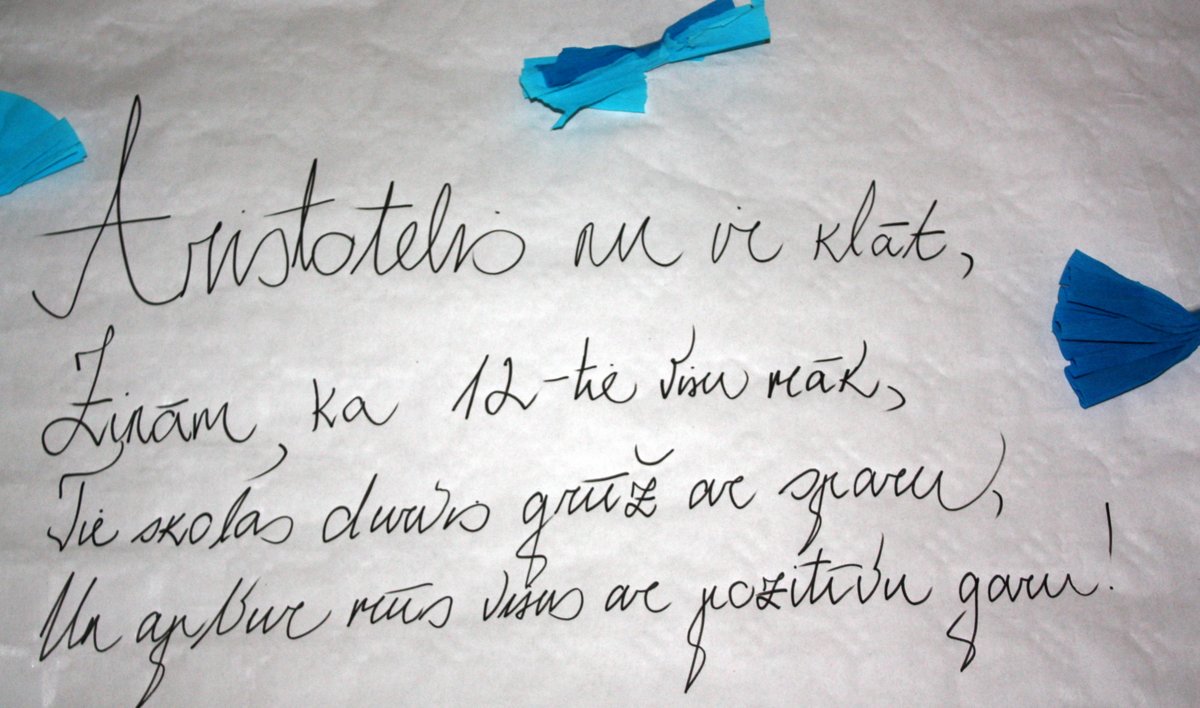 Aristotelis nu ir klāt,
Zinām, ka 12-tie visu māk,
Tie skolas durvis grūž ar sparu,
Un apbur mūs visus ar pozitīvu garu!